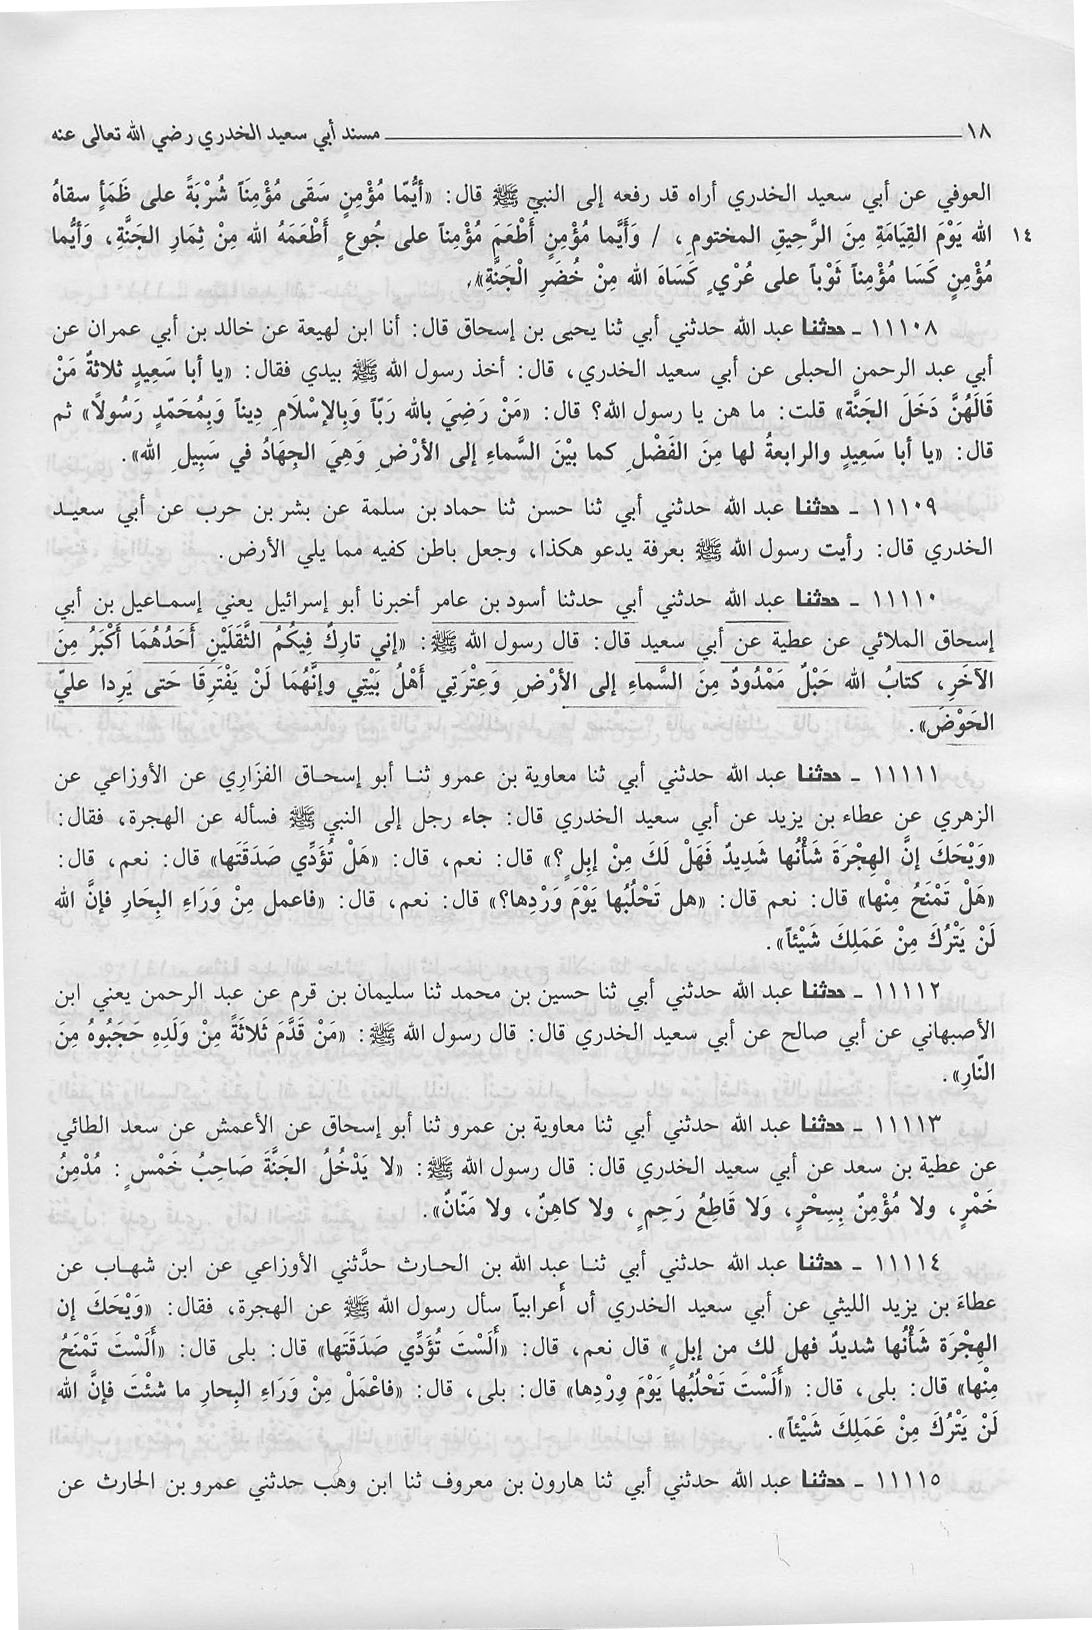 ١٨ مسند أبي سعيد الخدري رضي الله تعالى عنه
العوفي عن أبي سعيد الخدري أراه قد رفعه إلى النبي ﷺ قال: «أيُّمَا مُؤْمِنٍ سَقَى مُؤْمِنَاً شُرْبَةً على ظَمَأٍ سقاهُ
١٤ الله يَوْمَ القِيَامَةِ مِنَ الرَّحِيقِ المختومِ، / وَأَيَّما مُؤْمِنٍ أَطْعَمَ مُؤْمِناً على جُوعٍ أَطْعَمَهُ الله مِنْ ثِمَارِ الجَنَّةِ، وَأيُّما
مُؤْمِنٍ كَسَا مُؤْمِناً ثَوْباً على عُرْيٍ كَسَاهَ الله مِنْ خُضَرِ الْجَنَّةِ».
١١١٠٨ ـ حدثنا عبد الله حدثني أبي ثنا يحيى بن إسحاق قال: أنا ابن لهيعة عن خالد بن أبي عمران عن
أبي عبد الرحمن الحبلى عن أبي سعيد الخدري، قال: أخذ رسول الله ﷺ بيدي فقال: «يا أبا سَعِيدٍ ثلاثةٌ مَنْ
قَالَهُنَّ دَخَلَ الجَنَّة» قلت: ما هن يا رسول الله؟ قال: «مَنْ رَضِيَ بالله رَبّاً وَبِالإسْلَامِ دِيناً وَبِمُحَمّدٍ رَسُولًا» ثم
قال: «يا أبا سَعِيدٍ والرابعةُ لها مِنَ الفَضْلِ كما بيْنَ السَّماءِ إلى الأرْضِ وَهِيَ الجِهَادُ في سَبِيلِ الله».
١١١٠٩ ـ حدثنا عبد الله حدثني أبي ثنا حسن ثنا حماد بن سلمة عن بشر بن حرب عن أبي سعيـد
الخدري قال: رأيت رسول الله ﷺ بعرفة يدعو هكذا، وجعل باطن كفيه مما يلي الأرض.
١١١١٠ ـ حدثنا عبد الله حدثني أبي حدثنا أسود بن عامر أخبرنا أبو إسرائيل يعني إسماعيل بن أبي
إسحاق الملائي عن عطية عن أبي سعيد قال: قال رسول الله ﷺ: «إني تاركٌ فيكُمُ الثَّقَلَيْنِ أَحَدُهُمَا أَكْبَرُ مِنَ
الآخَرِ، كتابُ الله حَبْلٌ مَمْدُودٌ مِنَ السَّماءِ إلى الأرْضِ وَعِتْرَتِي أَهْلُ بَيْتِي وإنَّهُمَا لَنْ يَفْتَرِقَا حَتى يَرِدا عليّ
الحَوْضَ».
١١١١١ ـ حدثنا عبد الله حدثني أبي ثنا معاوية بن عمرو ثنـا أبو إسحـاق الفزَارِي عن الأوزاعي عن
الزهري عن عطاء بن يزيد عن أبي سعيد الخدري قال: جاء رجل إلى النبي ﷺ فسأله عن الهجرة، فقال:
«وَيْحَكَ إنَّ الهِجْرَةَ شَأْنُها شَدِيدٌ فَهَلْ لَكَ مِنْ إبِلٍ؟» قال: نعم، قال: «هَلْ تُؤَدِّي صَدَقَتَها» قال: نعم، قال:
«هَلْ تَمْنَحُ مِنْها» قال: نعم قال: «هل تَحْلُبُها يَوْمَ وَرْدِها؟» قال: نعم، قال: «فاعمل مِنْ وَرَاءِ البِحَارِ فإنَّ الله
لَنْ يَتْرُكَ مِنْ عَمَلِكَ شَيْئاً».
١١١١٢ ـ حدثنا عبد الله حدثني أبي ثنا حسين بن محمد ثنا سليمان بن قرم عن عبد الرحمن يعني ابن
الأصبهاني عن أبي صالح عن أبي سعيد الخدري قال: قال رسول الله ﷺ: «مَنْ قَدَّمَ ثَلاثَةً مِنْ وَلَدِهِ حَجَبُوهُ مِنَ
النّارِ».
١١١١٣ ـ حدثنا عبد الله حدثني أبي ثنا معاوية بن عمرو ثنا أبو إسحاق عن الأعمش عن سعد الطائي
عن عطية بن سعد عن أبي سعيد الخدري قال: قال رسول الله ﷺ: «لا يَدْخُلُ الجَنَّةَ صَاحِبُ خَمْسٍ: مُدْمِنُ
خَمْرٍ، ولا مُؤْمِنٌ بِسِحْرٍ، وَلا قَاطِعُ رَحِمٍ، ولا كاهِنٌ، ولا مَنّانٌ».
١١١١٤ ـ حدثنا عبد الله حدثني أبي ثنـا عبد الله بن الحـارث حدَّثني الأوزاعي عن ابن شهـاب عن
عطاءَ بن يزيد الليثي عن أبي سعيد الخدري أن أعرابياً سأل رسول الله ﷺ عن الهجرة، فقال: «وَيْحَكَ إن
الهِجْرَة شَأْنُها شديدٌ فهل لك من إبلٍ» قال نعم، قال: «أَلَسْتَ تُؤَدِّي صَدَقَتَها» قال: بلى قال: «أَلَسْتَ تَمْنَحُ
مِنْها» قال: بلى، قال: «أَلَسْتَ تَحْلُبُها يَوْمَ وِرْدِها» قال: بلى، قال: «فاعْمَلْ مِنْ وَرَاءِ البِحارِ ما شئْتَ فإنَّ الله
لَنْ يَتْرُكَ مِنْ عَمَلِكَ شَيْئاً».
١١١١٥ ـ حدثنا عبد الله حدثني أبي ثنا هارون بن معروف ثنا ابن وهب حدثني عمرو بن الحارث عن